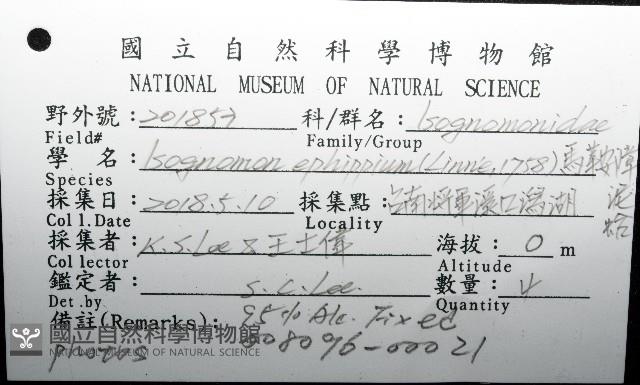 國立自然科學博物館
NATIONAL MUSEUM OF NATURAL SCIENCE
野外號：201853 科/群名：Isognomonidae
Field# Family/Group
學名：Isognomon ephippium (Linne, 1758) 馬鞍障泥蛤
Species
採集日：2018.5.10 採集點：台南將軍溪口潟湖
Coll.Date Locality
採集者：K.S.Lee & 王士偉 海拔：0 m
Collector Altitude
鑑定者：S.C.Lee 數量：4
Det.by Quantity
備註(Remarks)：95% Alc. Fixed
國立自然科學博物館
NATIONAL MUSEUM OF NATURAL SCIENCE
photos 008096-00021